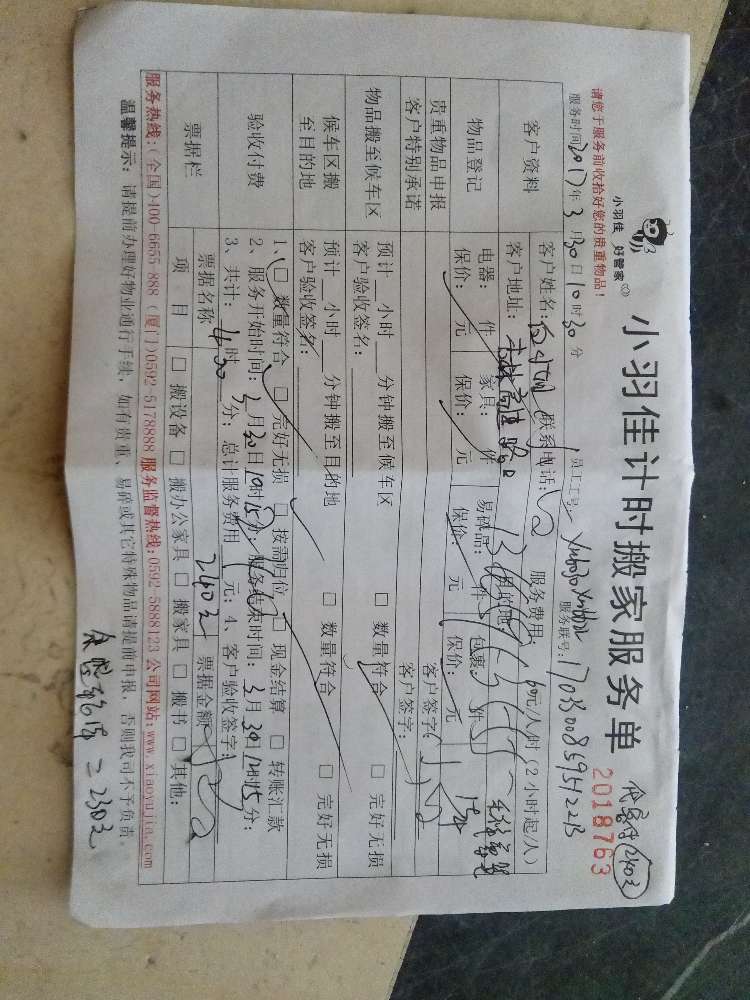 小羽佳 好管家
小羽佳计时搬家服务单
2018763
请您于服务前收拾好您的贵重物品！
服务时间2017年3月30日10时30分
员工工号：
服务联号：
客户资料
客户姓名： 联系电话： 服务费用：60元/人/时（2小时起/人）
客户地址： 目的地：
物品登记
电器： 件 家具： 件 易碎品： 件 包裹： 件
保价： 元 保价： 元 保价： 元 保价： 元
贵重物品申报
客户签字：
客户特别承诺
客户签字：
物品搬至候车区
预计 小时 分钟搬至候车区 □ 数量符合 □ 完好无损
客户验收签名：
候车区搬至目的地
预计 小时 分钟搬至目的地 □ 数量符合 □ 完好无损
客户验收签名：
验收付费
1、□ 数量符合 □ 完好无损 □ 按需归位 □ 现金结算 □ 转账汇款
2、服务开始时间：3月30日10时15分；服务结束时间：3月30日 时15分；
3、共计： 时 分；总计服务费用 240元；4、客户验收签字：
票据栏
票据名称 票据金额
项目 □ 搬设备 □ 搬办公家具 □ 搬家具 □ 搬书 □ 其他：
服务热线：(全国)400-6655-888 (厦门)0592-5178888 服务监督热线：0592-5888123 公司网站：www.xiaoyujia.com
温馨提示：请提前办理好物业通行手续，如有贵重、易碎或其它特殊物品请提前申报，否则我司不予负责。